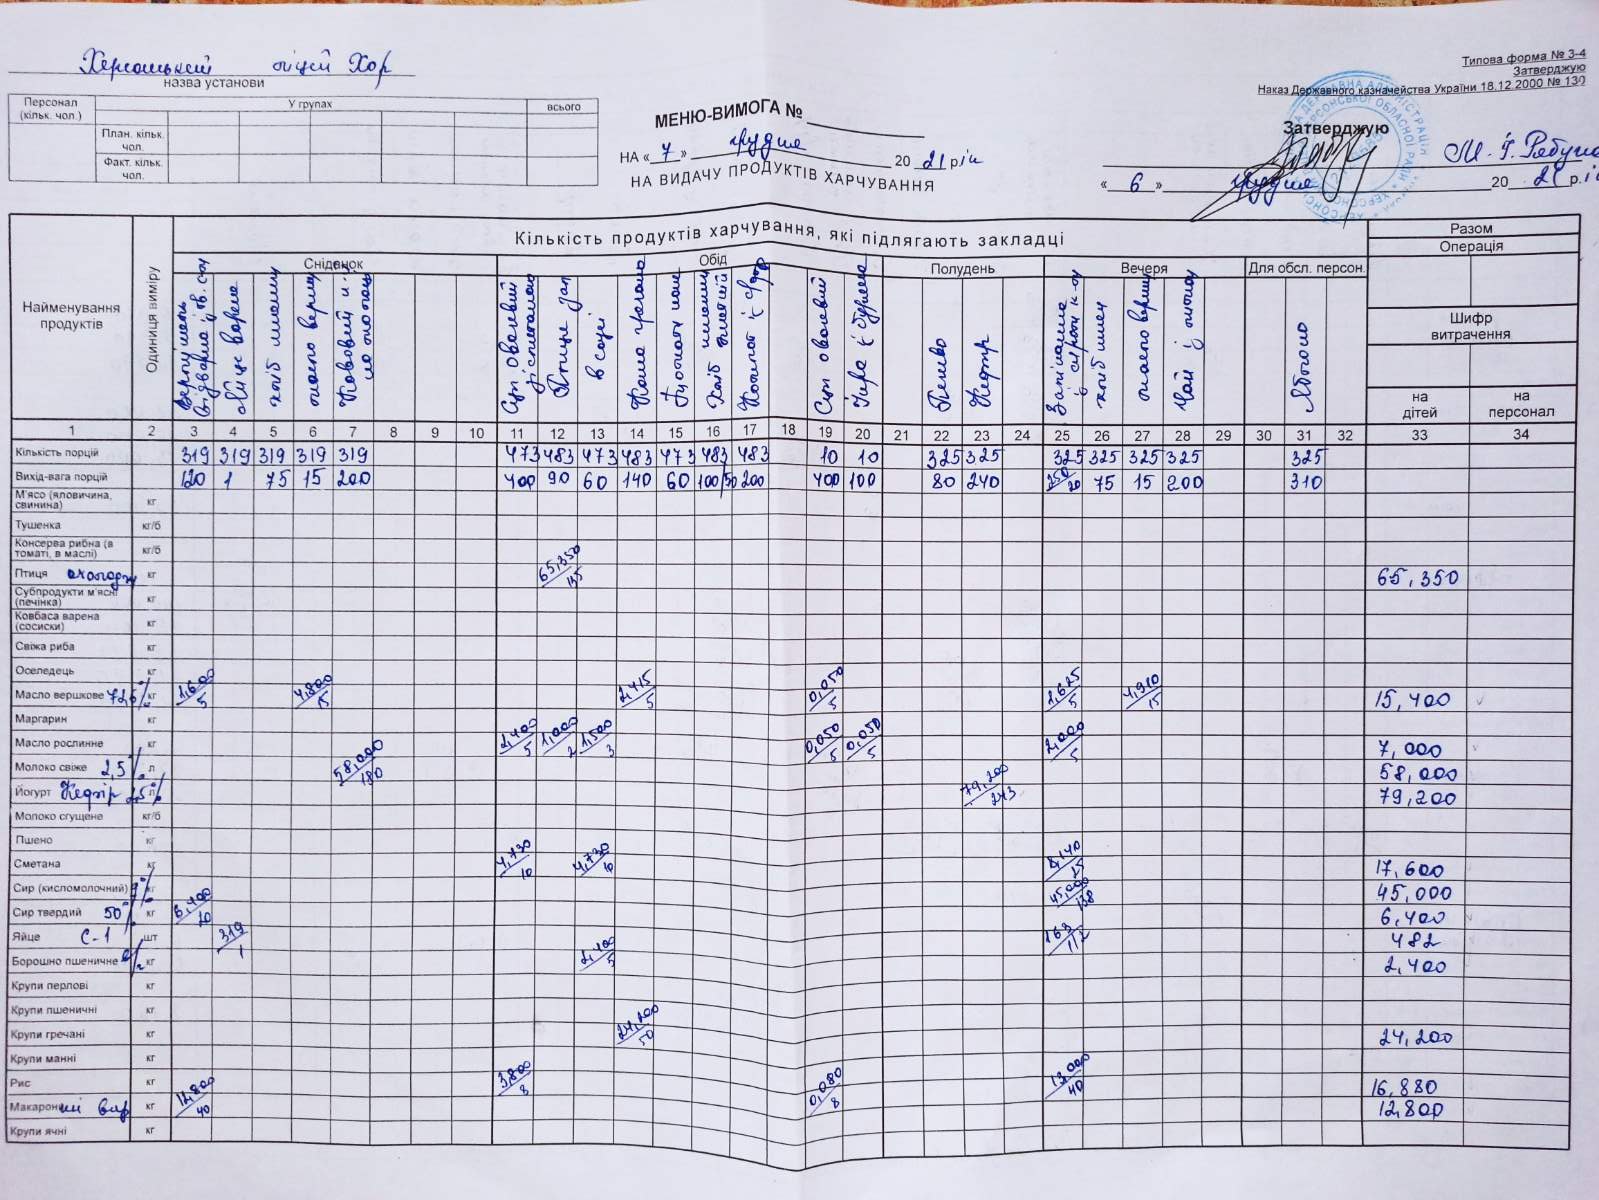 Херсонський ліцей Хор
назва установи
Персонал (кільк. чол.) У групах всього
План. кільк. чол.
Факт. кільк. чол.
МЕНЮ-ВИМОГА №
НА « 7 » грудня 20 21 рік
НА ВИДАЧУ ПРОДУКТІВ ХАРЧУВАННЯ
Типова форма № 3-4
Затверджую
Наказ Державного казначейства України 18.12.2000 № 130
Затверджую
« 6 » грудня 20 21 р.
Найменування продуктів
Одиниця виміру
Кількість продуктів харчування, які підлягають закладці
Разом
Операція
Сніданок Обід Полудень Вечеря Для обсл. персон.
Шифр витрачення
на дітей на персонал
яйце варене
хліб пшенич
масло верш
Суп овочевий зі сметаною
Птиця зап
в соусі
Каша гречана
Суп овочевий
Печиво
Кефір
Запіканка
масло верш
Чай з лимон
Яблоко
1 2 3 4 5 6 7 8 9 10 11 12 13 14 15 16 17 18 19 20 21 22 23 24 25 26 27 28 29 30 31 32 33 34
Кількість порцій 319 319 319 319 319 473 483 473 483 473 483 483 10 10 325 325 325 325 325 325 325
Вихід-вага порцій 120 1 75 15 200 400 90 60 140 60 100/50 200 400 100 80 240 250/20 75 15 200 310
М'ясо (яловичина, свинина) кг
Тушенка кг/б
Консерва рибна (в томаті, в маслі) кг/б
Птиця охолодж кг 65,350/135 65,350
Субпродукти м'ясні (печінка) кг
Ковбаса варена (сосиски) кг
Свіжа риба кг
Оселедець кг
Масло вершкове 72,6% кг 1,600/5 4,800/15 2,415/5 0,050/5 1,625/5 4,910/15 15,400
Маргарин кг
Масло рослинне кг 2,400/5 1,000/2 1,500/3 0,050/5 0,050/5 2,000/5 7,000
Молоко свіже 2,5% л 58,000/180 58,000
Йогурт Кефір 2,5% л 79,200/243 79,200
Молоко сгущене кг/б
Пшено кг
Сметана кг 4,730/10 4,730/10 8,140/25 17,600
Сир (кисломолочний) 9% кг 45,000/138 45,000
Сир твердий 50% кг 6,400/20 6,400
Яйце С-1 шт 319/1 163/1/2 482
Борошно пшеничне в/г кг 2,400/5 2,400
Крупи перлові кг
Крупи пшеничні кг
Крупи гречані кг 24,200/50 24,200
Крупи манні кг
Рис кг 3,800/8 0,080/8 13,000/40 16,880
Макаронні вир кг 12,800/40 12,800
Крупи ячні кг